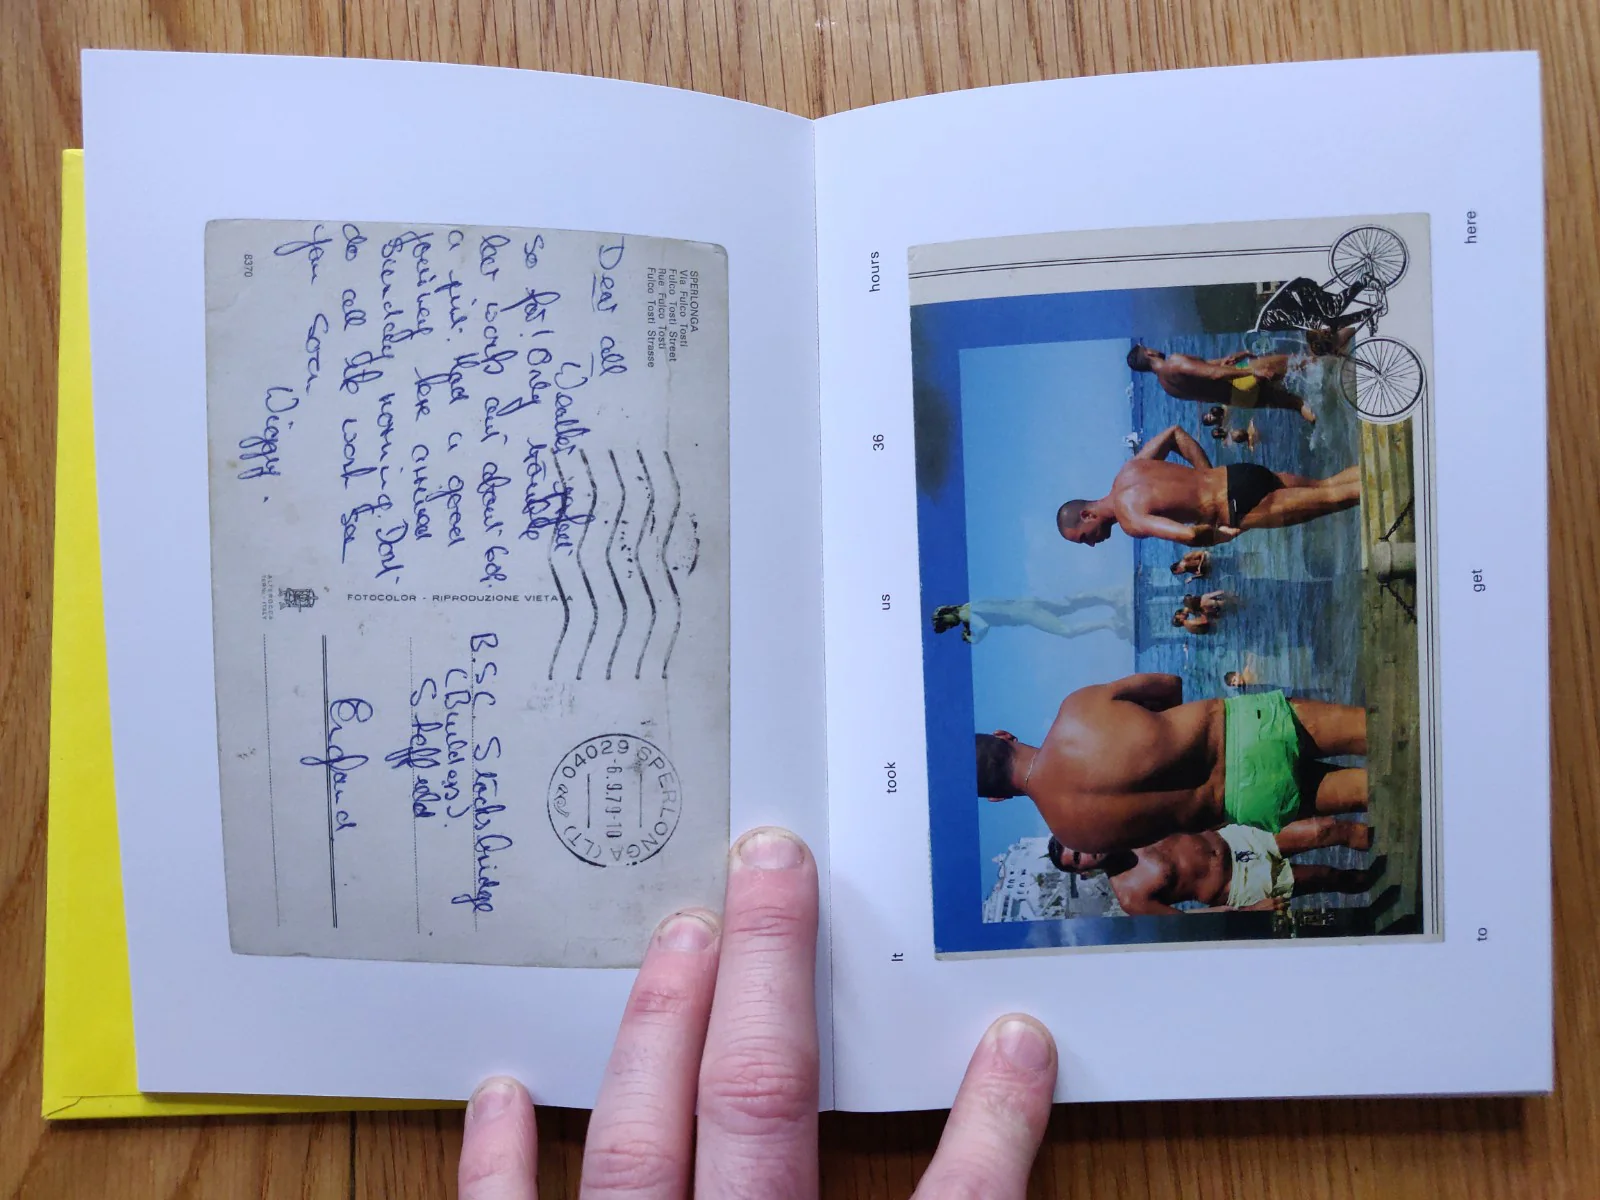 SPERLONGA
Via Fulco Tosti
Fulco Tosti Street
Rue Fulco Tosti
Fulco Tosti Strasse
Dear all
Weather perfect
so far! Only trouble
beer works out about 60p.
a pint. Had a good
journey here arrived
Sunday morning. Dont
do all the work see
you soon
Wiggy.
8370
FOTOCOLOR - RIPRODUZIONE VIETATA
04029 SPERLONGA (LT)
-6.9.79-10
B.S.C. Stocksbridge
Sheffield
England
It took us 36 hours
to get here